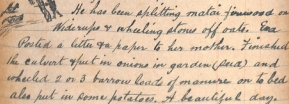 He has been splitting matai firewood on
Widerups & wheeling stones off oats. Eva
Posted a letter & a paper to her mother. Finished
the culvert & put in onions in garden (seed) and
wheeled 2 or 3 barrow loads of manure on to bed
also put in some potatoes. A beautiful day.